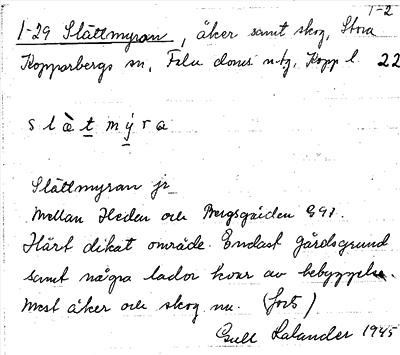 1-2
1-29 Slättmyran, åker samt skog, Stora
Kopparbergs sn, Falu doms. ntg, Kopp l. 22
slàtmýra
Slättmyran jr
Mellan Heden och Bergsgården 691.
Hårt dikat område. Endast gårdsgrund
samt några lador kvar av bebyggelse.
Mest åker och skog nu. (forts)
Gull Salander 1945